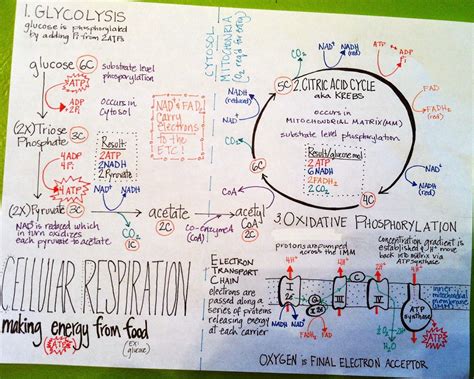 1. GLYCOLYSIS
glucose is phosphorylated
by adding Pi from 2ATPs
glucose 6C
substrate level
phosphorylation
2ATP
2ADP
2Pi
occurs in
Cytosol
(2X) Triose
Phosphate 3C
4ADP
4Pi
4ATP
Result:
2ATP
2NADH
2Pyruvate
NAD+ & FAD
carry
electrons
to the
ETC!
(2X) Pyruvate 3C
NAD+ NADH
acetate
2C
CO2
1C
co-enzymeA
(CoA)
acetyl
CoA
2C
NAD+ is reduced which
in turn oxidizes
each pyruvate to acetate
CYTOSOL
MITOCHONDRIA
(O2 req'd for entry)
2. CITRIC ACID CYCLE
aka KREBS
occurs in
MITOCHONDRIAL MATRIX (MM)
substrate level phosphorylation
Result/glucose mol
2ATP
6NADH
2FADH2
2CO2
5C
6C
4C
CO2
NAD+
NADH
(reduced)
NADH
(red)
NAD+
CO2
CoA
ATP
ADP
Pi
FAD
FADH2
(red)
NAD+
NADH
(red)
3. OXIDATIVE PHOSPHORYLATION
protons are pumped
across the IMM
concentration gradient is
established & H+ move
back into matrix via
ATP synthase
ELECTRON
TRANSPORT
CHAIN
electrons are
passed along a
series of proteins
releasing energy at
each carrier
4H+
I
Q
III
C
IV
ATP
Synthase
inner
mitochondrial
membrane
(IMM)
NADH NAD+
FADH2 FAD
H2O
ADP
Pi
ATP
CELLULAR RESPIRATION
making energy from food
ATP
(ex:
glucose)
OXYGEN is FINAL ELECTRON ACCEPTOR